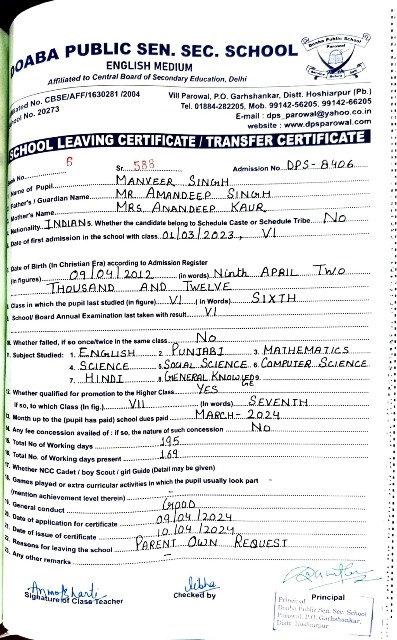 DOABA PUBLIC SEN. SEC. SCHOOL
ENGLISH MEDIUM
Affiliated to Central Board of Secondary Education, Delhi
Doaba Public School
Parowal
Affiliated No. CBSE/AFF/1630281 /2004
School No. 20273
Vill Parowal, P.O. Garhshankar, Distt. Hoshiarpur (Pb.)
Tel. 01884-282205, Mob. 99142-56205, 99142-66205
E-mail : dps_parowal@yahoo.co.in
website : www.dpsparowal.com
SCHOOL LEAVING CERTIFICATE / TRANSFER CERTIFICATE
Book No. 6 Sr. 583 Admission No. DPS-8406
Name of Pupil MANVEER SINGH
Father's / Guardian Name MR. AMANDEEP SINGH
Mother's Name MRS. ANANDEEP KAUR
Nationality INDIAN 5. Whether the candidate belong to Schedule Caste or Schedule Tribe NO
Date of first admission in the school with class 01/03/2023, VI
Date of Birth (In Christian Era) according to Admission Register
(in figures) 09/04/2012 (in words) Ninth APRIL TWO
THOUSAND AND TWELVE
Class in which the pupil last studied (in figure) VI (in Words) SIXTH
School/ Board Annual Examination last taken with result VI
10. Whether failed, if so once/twice in the same class NO
Subject Studied: 1. ENGLISH 2. PUNJABI 3. MATHEMATICS
4. SCIENCE 5. SOCIAL SCIENCE 6. COMPUTER SCIENCE
7. HINDI 8. GENERAL KNOWLEDGE
12. Whether qualified for promotion to the Higher Class YES
If so, to which Class (In fig.) VII (In Words) SEVENTH
13. Month up to the (pupil has paid) school dues paid MARCH-2024
14. Any fee concession availed of : if so, the nature of such concession NO
15. Total No of Working days 195
16. Total No of Working days present 169
17. Whether NCC Cadet / boy Scout / girl Guide (Detail may be given)
18. Games played or extra curricular activities in which the pupil usually look part -
(mention achievement level therein)
19. General conduct GOOD
20. Date of application for certificate 09/04/2024
21. Date of issue of certificate 10/04/2024
22. Reasons for leaving the school PARENT OWN REQUEST
23. Any other remarks
Signature of Class Teacher
Checked by
Principal
Principal
Doaba Public Sen. Sec. School
Parowal, P.O. Garhshankar,
Distt. Hoshiarpur